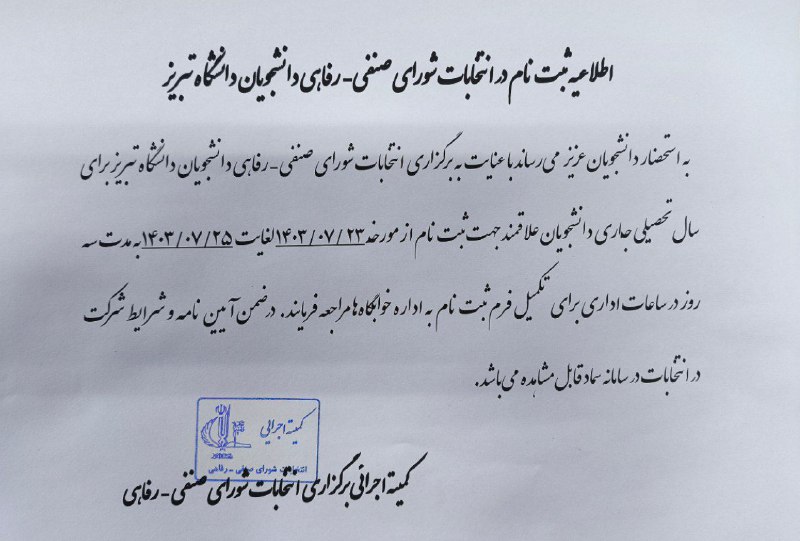 اطلاعیه ثبت نام در انتخابات شورای صنفی- رفاهی دانشجویان دانشگاه تبریز
به استحضار دانشجویان عزیز می رساند با عنایت به برگزاری انتخابات شورای صنفی- رفاهی دانشجویان دانشگاه تبریز برای
سال تحصیلی جاری دانشجویان علاقمند جهت ثبت نام از مورخه ۱۴۰۳/۰۷/۲۳ لغایت ۱۴۰۳/۰۷/۲۵ به مدت سه
روز در ساعات اداری برای تکمیل فرم ثبت نام به اداره خوابگاه ها مراجعه فرمایند. در ضمن آیین نامه و شرایط شرکت
در انتخابات در سامانه سماد قابل مشاهده می باشد.
کمیته اجرایی
انتخابات شورای صنفی - رفاهی
کمیته اجرائی برگزاری انتخابات شورای صنفی- رفاهی